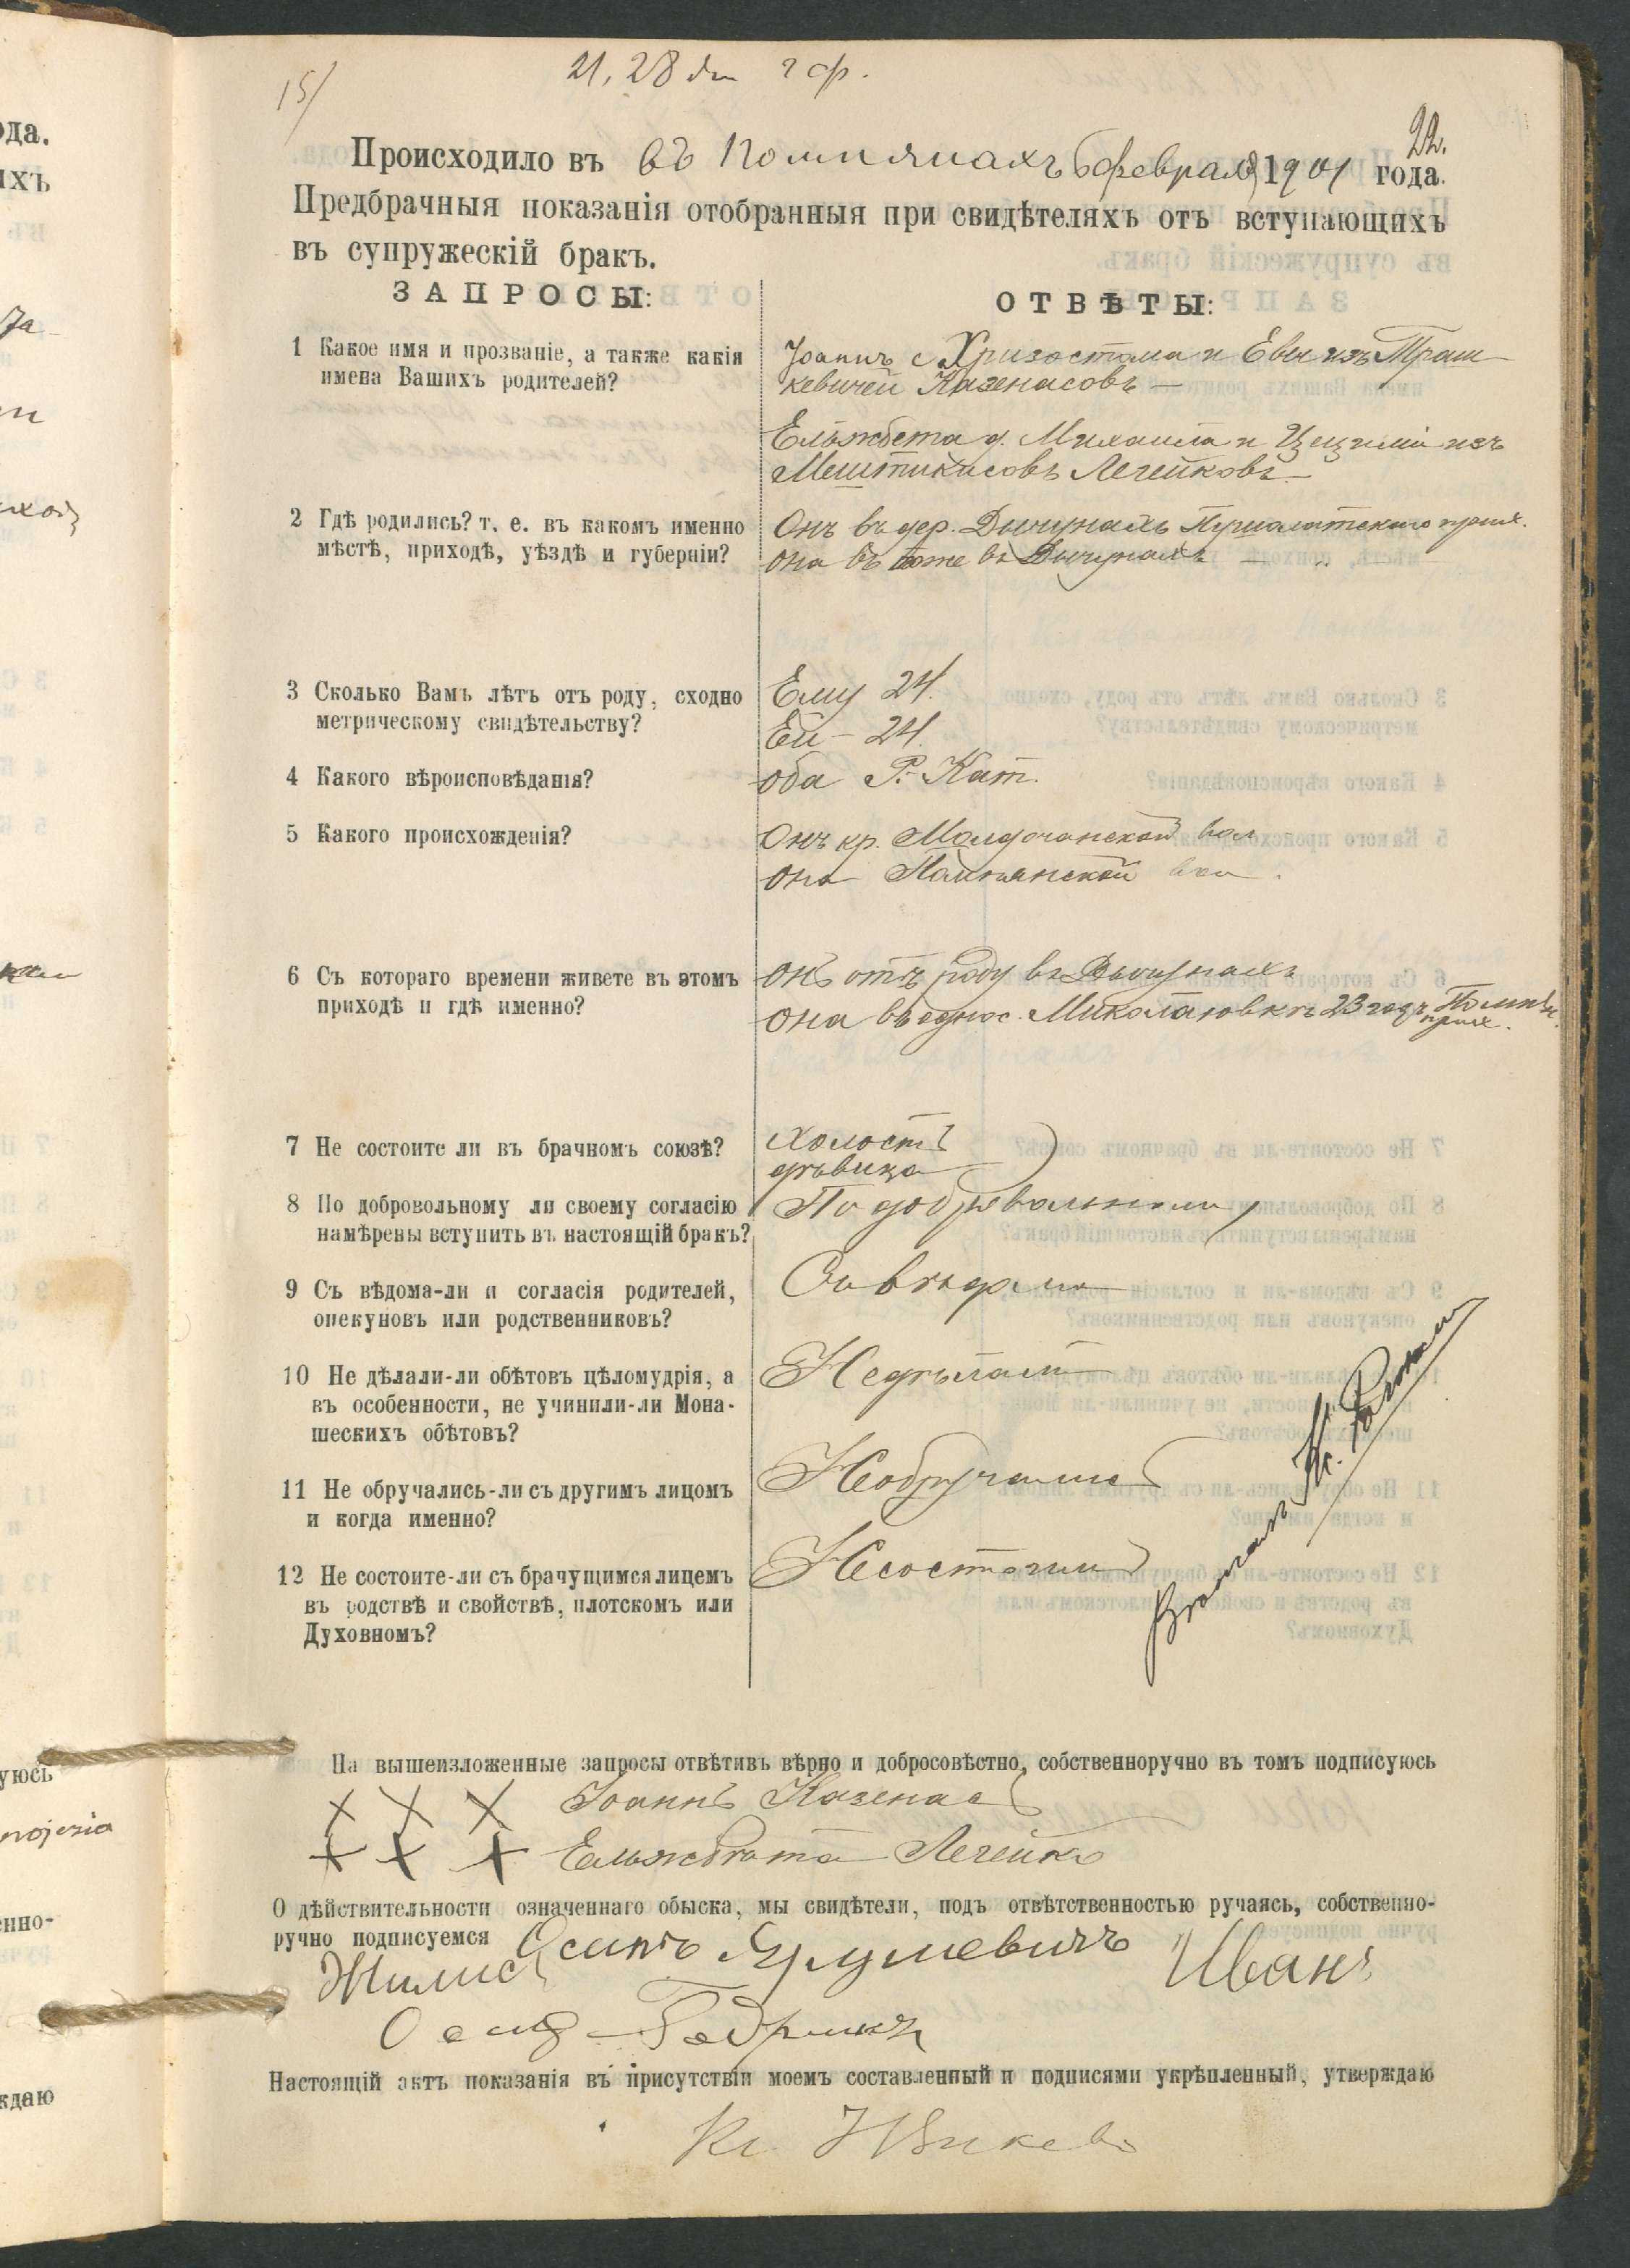 15/
21, 28 2 ф.
22.
Происходило въ въ Помпянахъ 6 февраля 1901 года.
Предбрачныя показанія отобранныя при свидѣтеляхъ отъ вступающихъ
въ супружескій бракъ.
ЗАПРОСЫ:
ОТВѢТЫ:
1 Какое имя и прозваніе, а также какія
имена Вашихъ родителей?
Іоаннъ с Хризостома и Евы изъ Траш
кевичей Казенасовъ —
Ельжбета д. Михаила и Цециліи изъ
Легейковъ
2 Гдѣ родились? т. е. въ какомъ именно
мѣстѣ, приходѣ, уѣздѣ и губерніи?
Онъ въ дер. прих.
она въ тоже въ
3 Сколько Вамъ лѣтъ отъ роду, сходно
метрическому свидѣтельству?
Ему 24.
Ей – 24.
4 Какого вѣроисповѣданія?
оба Р.-Кат.
5 Какого происхожденія?
Онъ кр. вол
она Помпянской вол.
6 Съ котораго времени живете въ этомъ
приходѣ и гдѣ именно?
онъ отъ роду въ
она въ однос. Миколаювкѣ 23 годъ Помпян.
прих.
7 Не состоите ли въ брачномъ союзѣ?
Холостъ
дѣвица
8 По добровольному ли своему согласію
намѣрены вступить въ настоящій бракъ?
По добровольному
9 Съ вѣдома-ли и согласія родителей,
опекуновъ или родственниковъ?
Съ вѣдома
10 Не дѣлали-ли обѣтовъ цѣломудрія, а
въ особенности, не учинили-ли Мона-
шескихъ обѣтовъ?
Не дѣлали
11 Не обручались-ли съ другимъ лицомъ
и когда именно?
Не обручались
12 Не состоите-ли съ брачущимся лицемъ
въ родствѣ и свойствѣ, плотскомъ или
Духовномъ?
Не состоимъ
На вышеизложенные запросы отвѣтивъ вѣрно и добросовѣстно, собственноручно въ томъ подписуюсь
Х Х Х Іоаннъ Казенасъ
+ + + Ельжбета Легейко
О дѣйствительности означеннаго обыска, мы свидѣтели, подъ отвѣтственностью ручаясь, собственно-
ручно подписуемся Осипъ Ярушевичъ Иванъ
Жилис
Настоящій актъ показанія въ присутствіи моемъ составленный и подписями укрѣпленный, утверждаю